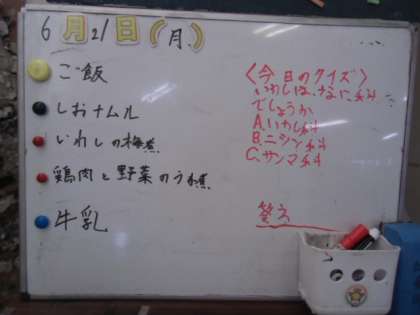 6月21日(月.)
ご飯
しおナムル
いわしの梅煮
鶏肉と野菜のうま煮
牛乳
〈今日のクイズ〉
いわしは、なに科
でしょうか
A.いわし科
B.ニシン科
C.サンマ科
答え